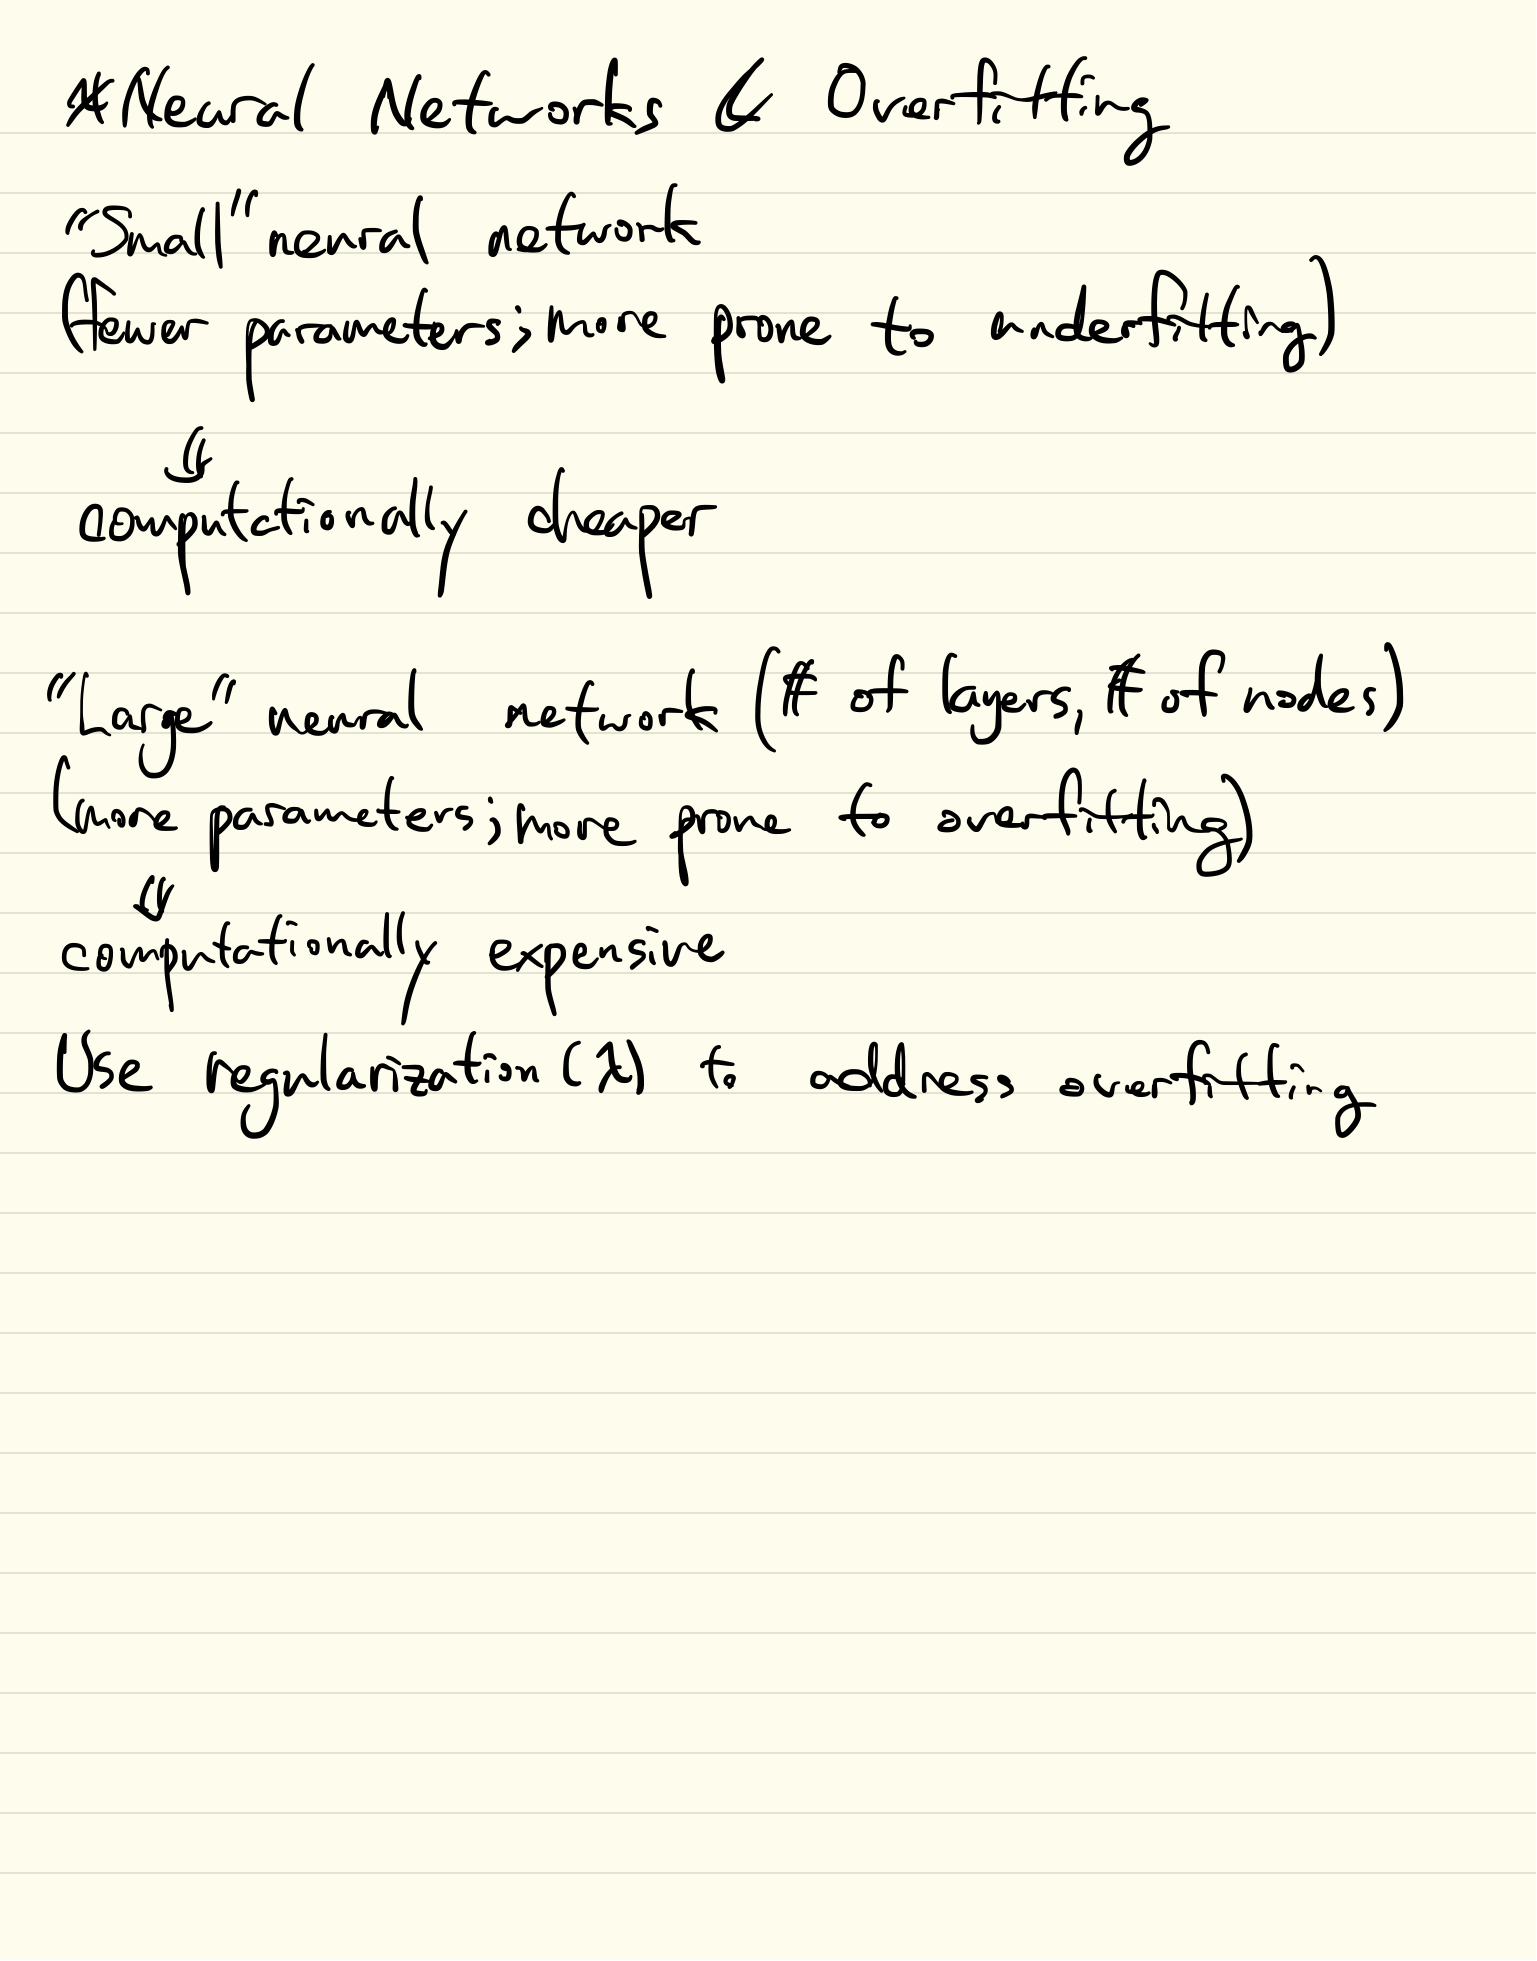 *Neural Networks & Overfitting
"Small" neural network
(fewer parameters; more prone to underfitting)
⇓
computationally cheaper
"Large" neural network (# of layers, # of nodes)
(more parameters; more prone to overfitting)
⇓
computationally expensive
Use regularization (λ) to address overfitting